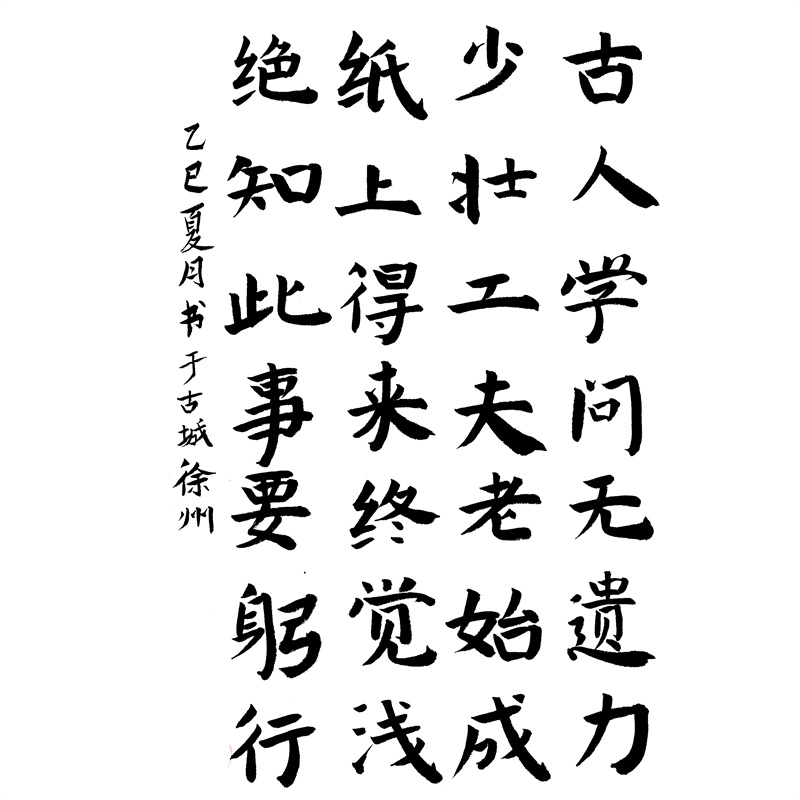 古人学问无遗力
少壮工夫老始成
纸上得来终觉浅
绝知此事要躬行
乙巳夏月书于古城徐州